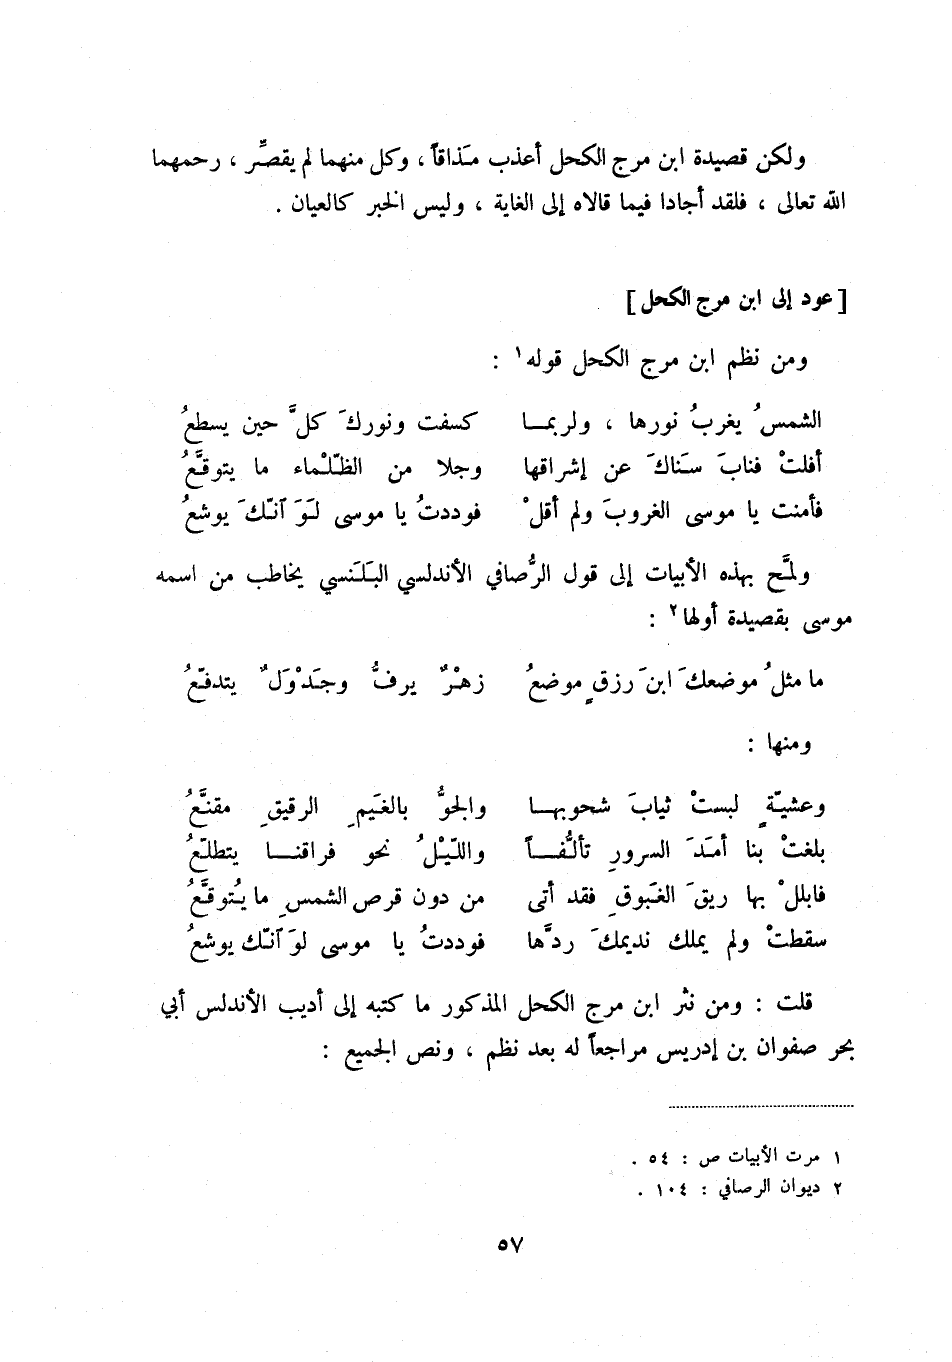 ولكن قصيدة ابن مرج الكحل أعذب مَذاقاً ، وكل منهما لم يقصِّر ، رحمهما
الله تعالى ، فلقد أجادا فيما قالاه إلى الغاية ، وليس الخبر كالعيان .
[ عود إلى ابن مرج الكحل ]
ومن نظم ابن مرج الكحل قوله١ :
الشمسُ يغربُ نورها ، ولربمـا كسفت ونوركَ كلَّ حين يسطعُ
أفلتْ فنابَ سَناكَ عن إشراقها وجلا من الظّلْماء ما يتوقَّعُ
فأمنت يا موسى الغروبَ ولم أقلْ فوددتُ يا موسى لوَ آنّكَ يوشعُ
ولمَّح بهذه الأبيات إلى قول الرُّصافي الأندلسي البَلَنسي يخاطب من اسمه
موسى بقصيدة أولها٢ :
ما مثلُ موضعكَ ابنَ رزقٍ موضعُ زهْرٌ يرفُّ وجَدْوَلٌ يتدفّعُ
ومنها :
وعشيّةٍ لبستْ ثيابَ شحوبهـا والجوُّ بالغَيمِ الرقيقِ مقنَّعُ
بلغتْ بنا أمَدَ السرورِ تألُّفـاً واللّيْلُ نحو فراقنـا يتطلّعُ
فابللْ بها ريقَ الغَبوقِ فقد أتى من دون قرص الشمسِ ما يُتوقَّعُ
سقطتْ ولم يملك نديمكَ ردَّها فوددتُ يا موسى لوَ آنّك يوشعُ
قلت : ومن نثر ابن مرج الكحل المذكور ما كتبه إلى أديب الأندلس أبي
بحر صفوان بن إدريس مراجعاً له بعد نظم ، ونص الجميع :
١ مرت الأبيات ص : ٥٤ .
٢ ديوان الرصافي : ١٠٤ .
٥٧